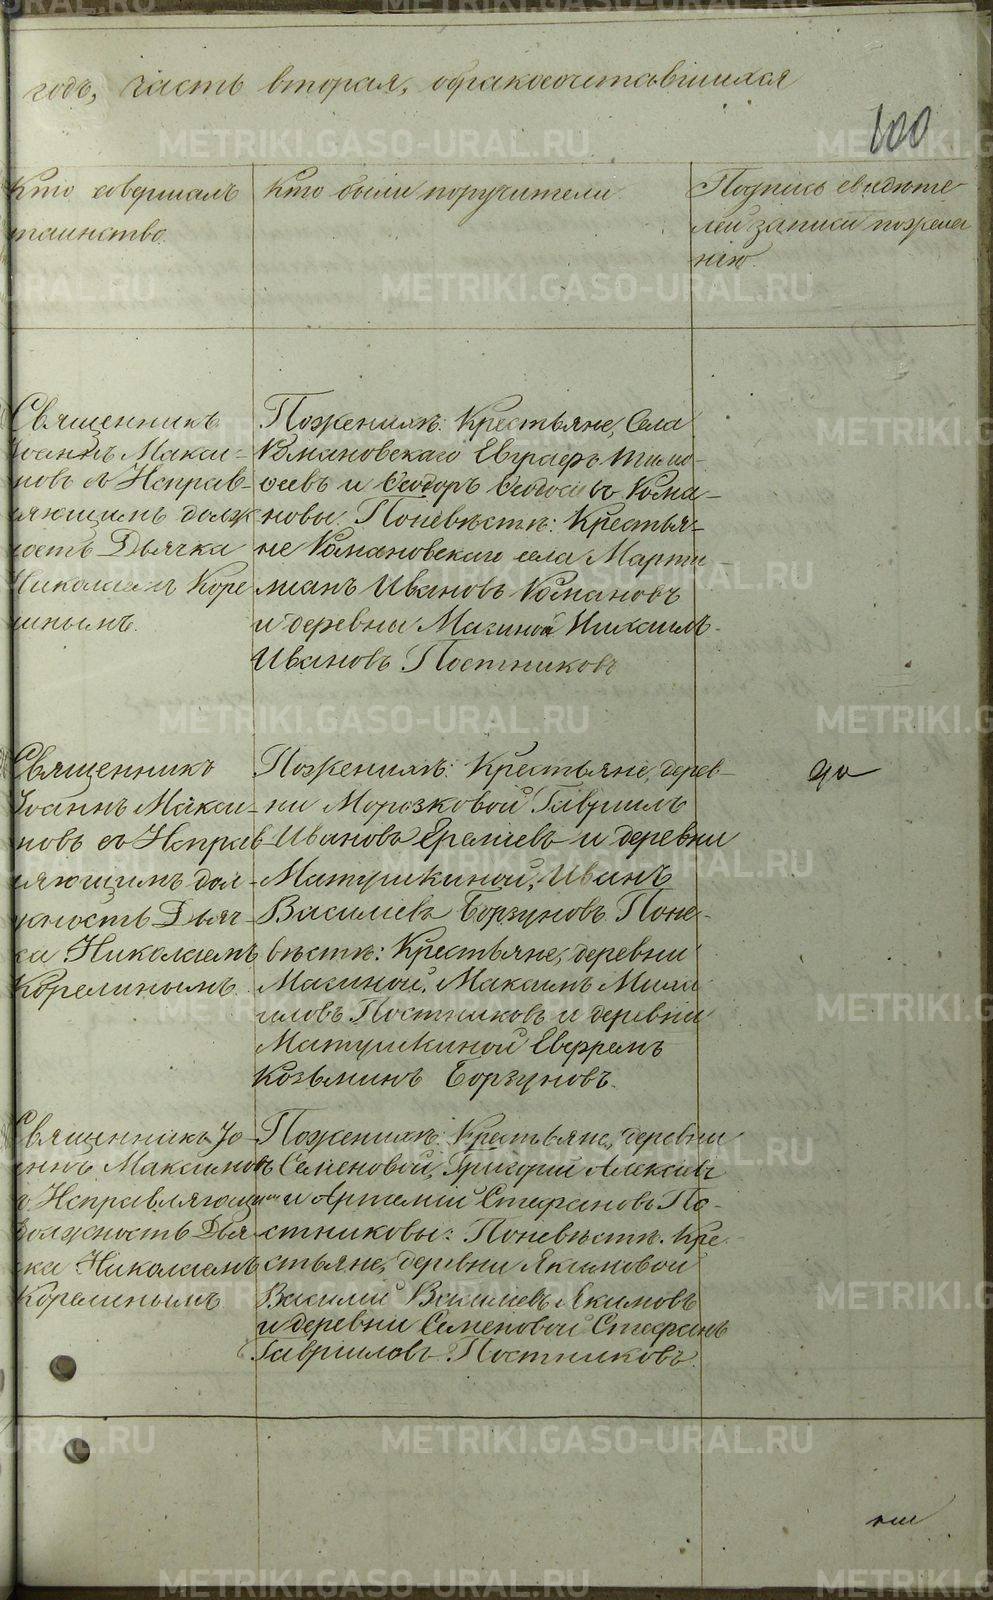 годъ, часть вторая, обракосочетавшихся
100
Кто совершалъ
таинство.
Кто были поручители
Подпись свидѣте
лей записи пожела
нію.
Священникъ
Іоаннъ Макси-
мовъ съ Исправ-
ляющимъ долж
ность Дьячка
Николаемъ Коре
линымъ.
Поженихѣ: Крестьяне, Села
Романовскаго Евграфъ Тимо-
ѳеевъ и Ѳеодоръ Ѳеодосіевъ Рома-
новы. Поневѣстѣ: Крестья-
не Романовскаго села Марти-
міанъ Ивановъ Романовъ
и деревни Масиной Михаилъ
Ивановъ Постниковъ
Священникъ
Іоаннъ Макси-
мовъ съ Исправ-
ляющимъ дол-
жность Дьяч-
ка Николаемъ
Корелинымъ.
Поженихѣ: Крестьяне, дерев-
ни Морозковой Гавріилъ
Ивановъ Еремѣевъ и деревни
Матушкиной, Иванъ
Василіевъ Борзуновъ Поне-
вѣстѣ: Крестьяне, деревни
Масиной, Максимъ Миха
иловъ Постниковъ и деревни
Матушкиной Ефремъ
Козьминъ Борзуновъ.
да
Священникъ Іо-
аннъ Максимовъ
съ Исправляющимъ
должность Дья-
чка Николаемъ
Корелинымъ
Поженихѣ: Крестьяне, деревни
Семеновой, Григорій Алексіевъ
и Артемій Стефановъ По-
стниковы: Поневѣстѣ: Кре-
стьяне, деревни Якимовой
Василій Василіевъ Якимовъ
и деревни Семеновой Стефанъ
Гавриловъ Постниковъ.
METRIKI.GASO-URAL.RU